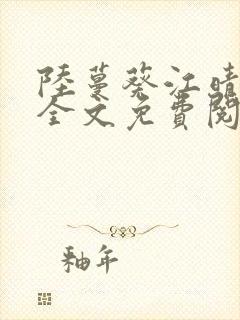 陸蔓葵江晴
全文免費閱
釉年